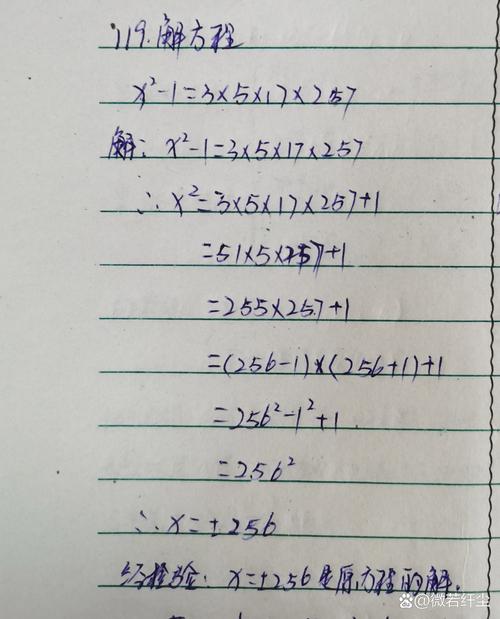 119.解方程
x²-1=3×5×17×257
解: x²-1=3×5×17×257
∴ x²=3×5×17×257+1
=51×5×257+1
=255×257+1
=(256-1)×(256+1)+1
=256²-1²+1
=256²
∴ x=±256
经检验: x=±256是原方程的解.
@微若纤尘